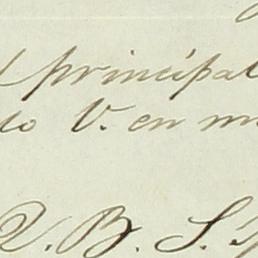 principal
to V. en m
Q. B. S.